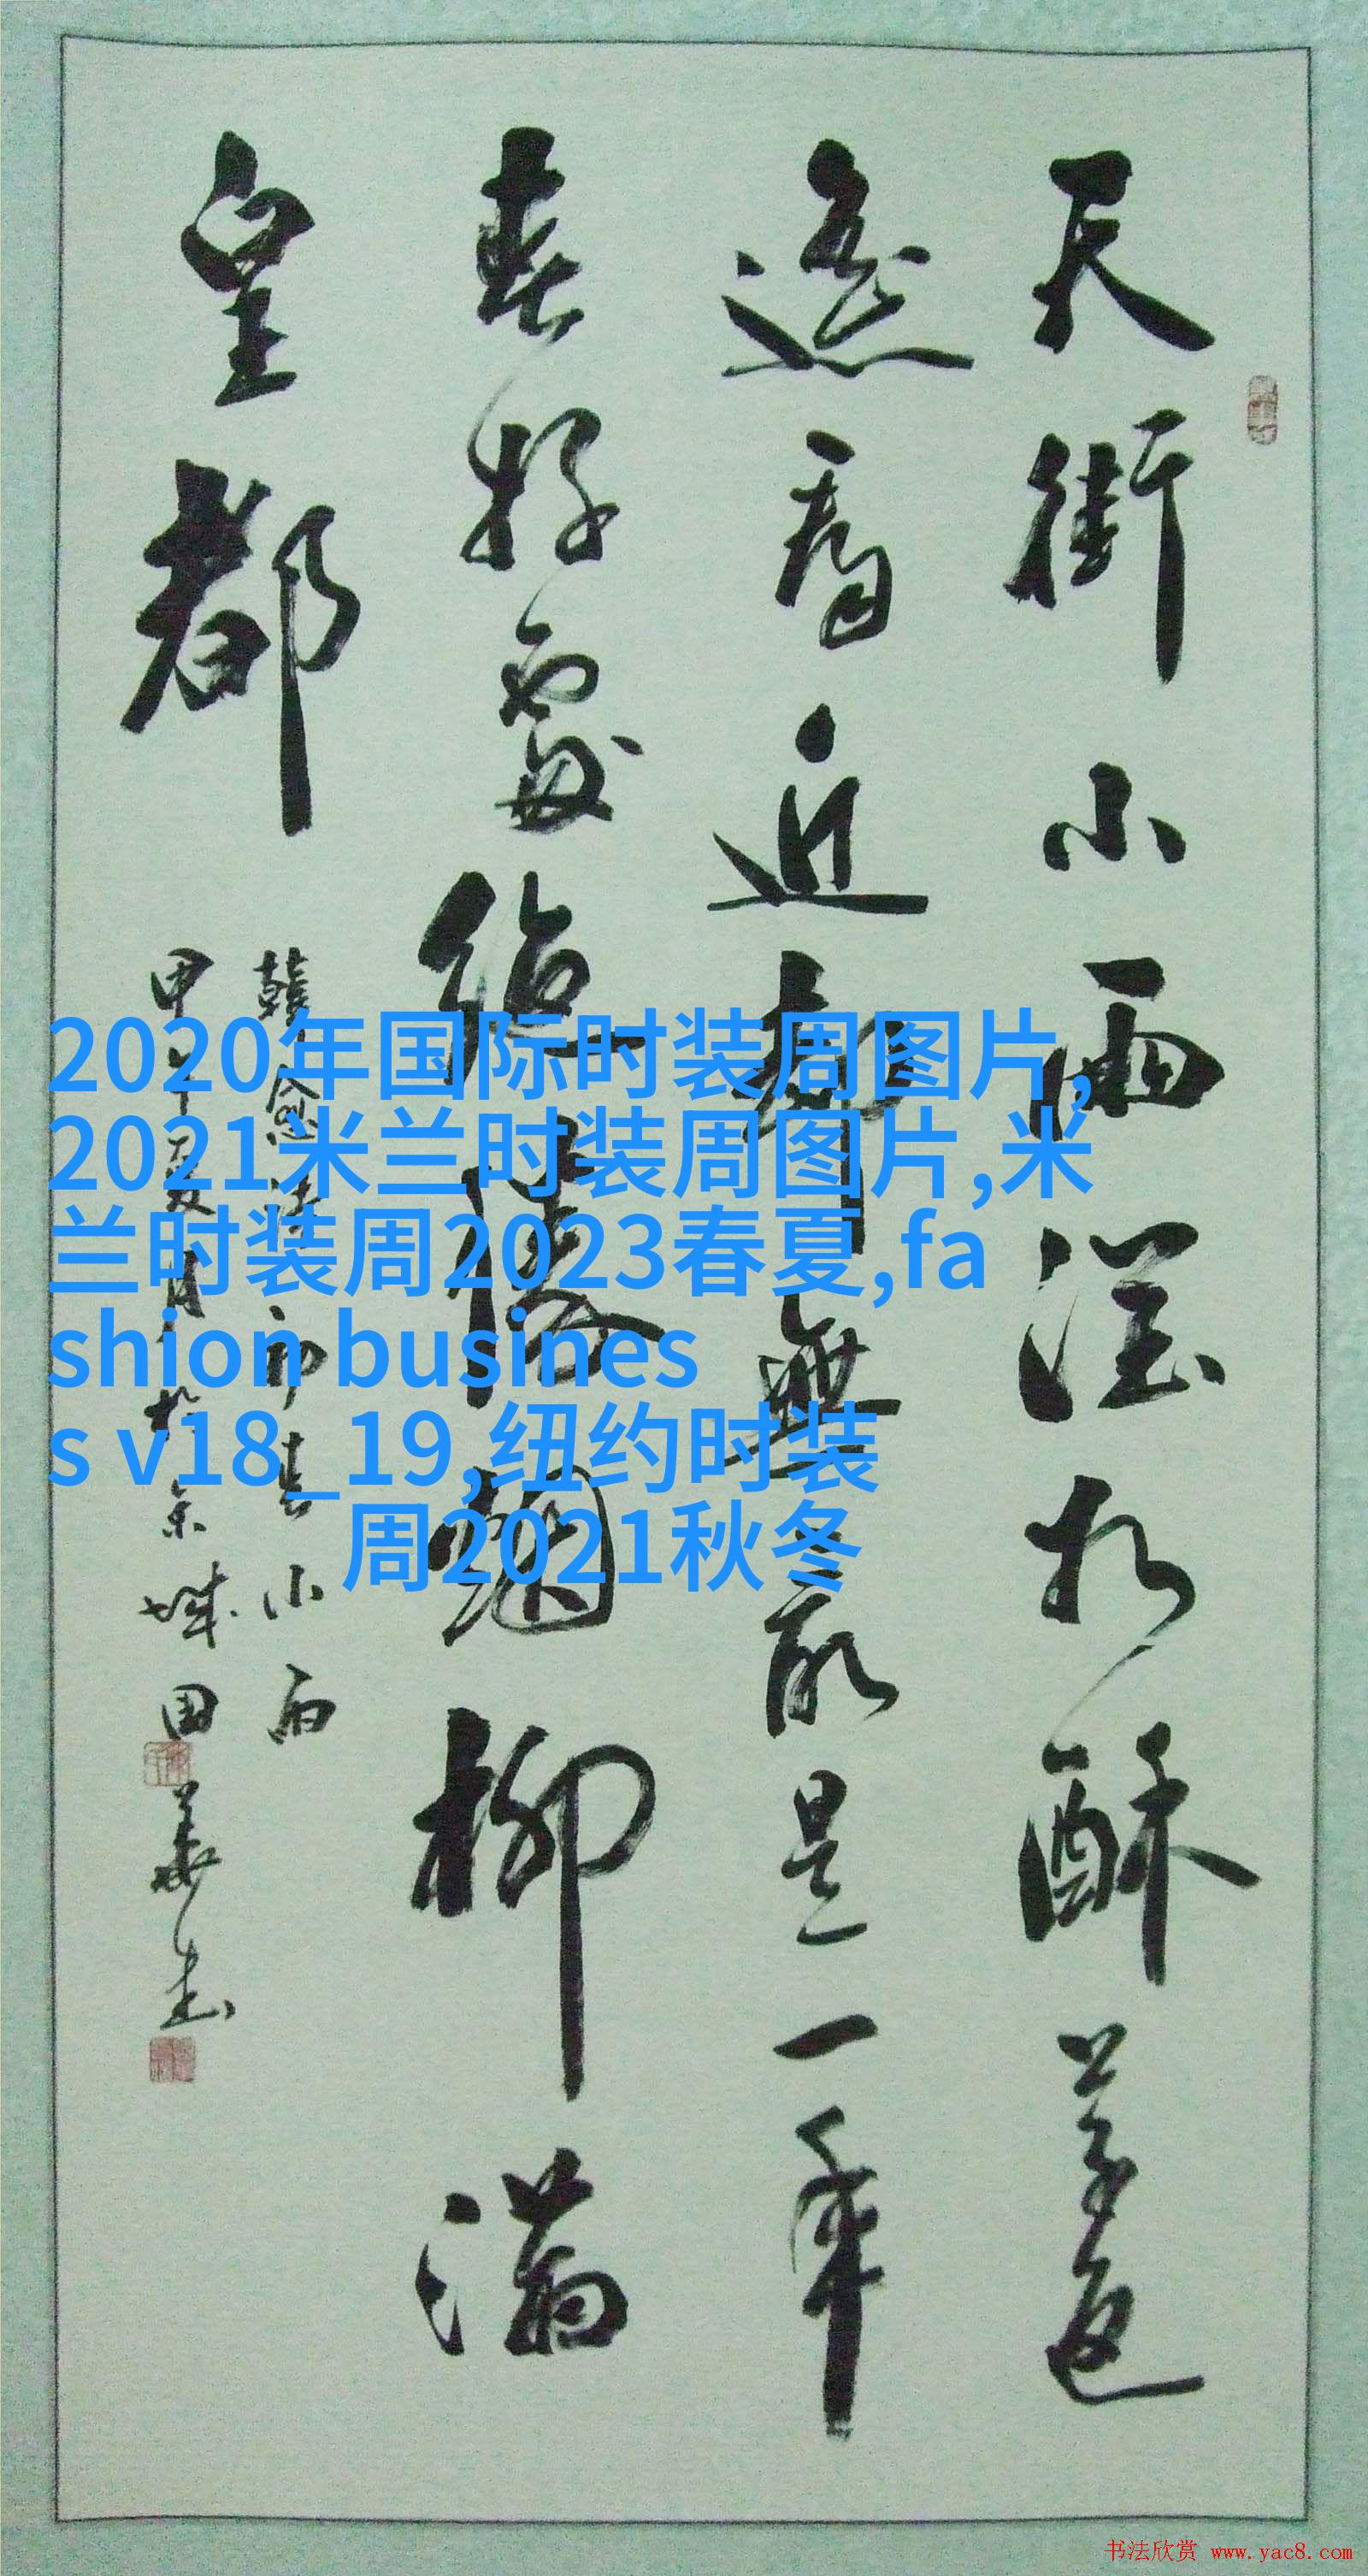 天街小雨润如酥草色
遥看近却无最是一年
春好处绝胜烟柳满
皇都
韩愈诗初春小雨
甲午夏月于京城国华书
2020年国际时装周图片,
2021米兰时装周图片,米
兰时装周2023春夏,fa
shion busines
s v18_19,纽约时装
周2021秋冬
书法欣赏 www.yac8.com